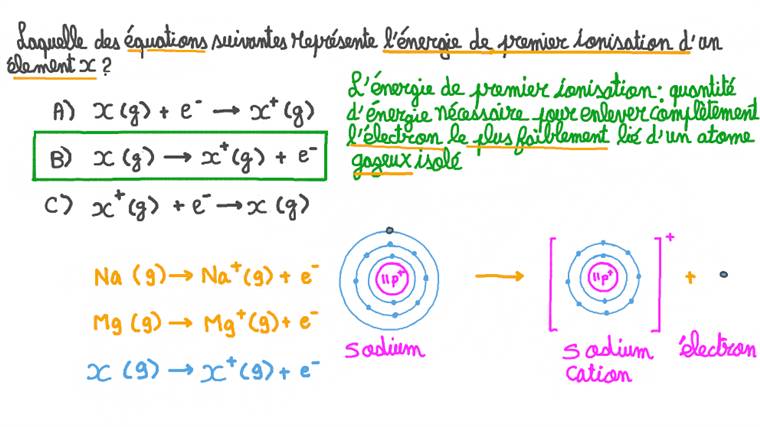 Laquelle des équations suivantes représente l'énergie de premier ionisation d'un
élement x ?
A) x(g) + e⁻ → x⁺(g)
B) x(g) → x⁺(g) + e⁻
C) x⁺(g) + e⁻ → x(g)
L'énergie de premier ionisation : quantité
d'énergie nécessaire pour enlever complètement
l'électron le plus faiblement lié d'un atome
gazeux isolé
Na (g) → Na⁺(g) + e⁻
Mg (g) → Mg⁺(g) + e⁻
x (g) → x⁺(g) + e⁻
11p⁺
sodium
→
[11p⁺]⁺ +
sodium
cation
électron